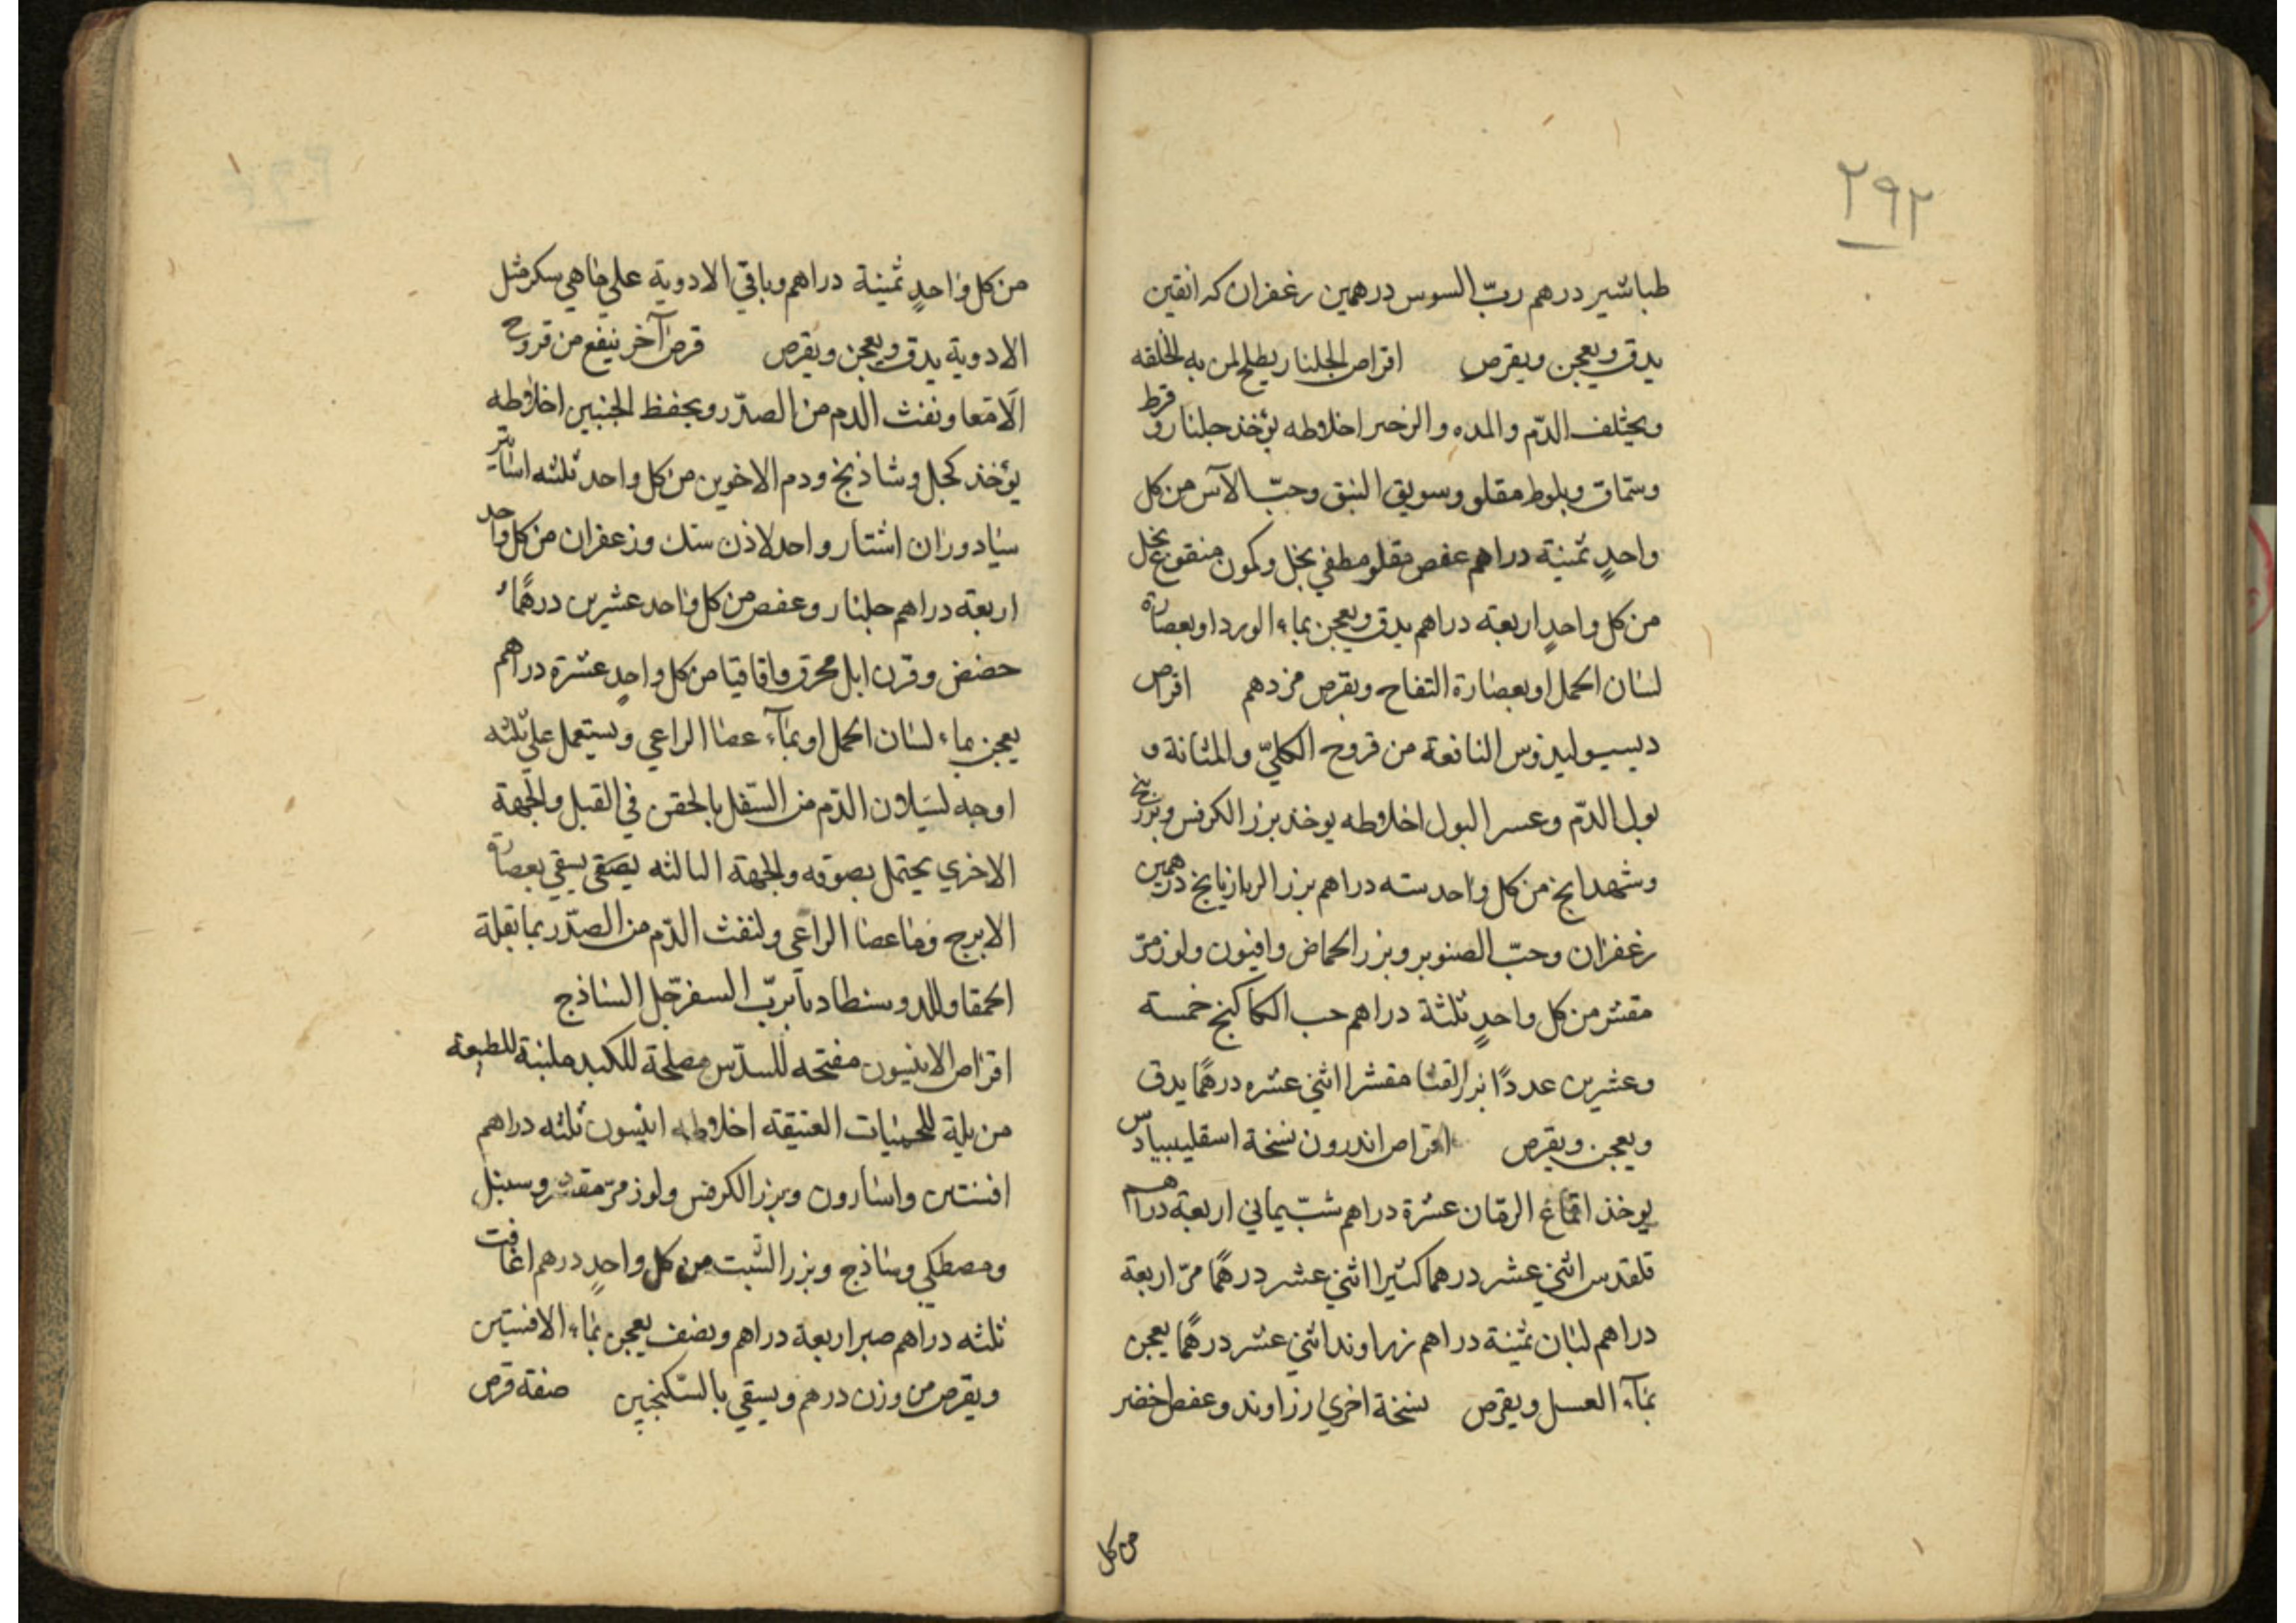 ٢٩٢
طباشير درهم ربّ السوس درهمين زعفران كدانقين
يدق ويعجن ويقرص اقراص الجلنار يطلح لمن به الخلفه
ويختلف الدّم والمده والزحير اخلاطه يؤخذ جلنار وقرط
وسمّاق وبلوط مقلو وسويق النبق وحبّ الآس من كل
واحدٍ ثمنية دراهم عفص مقلو مطفي بخل وكمون منقوع بخل
من كل واحدٍ اربعة دراهم يدق ويعجن بماء الورد او بعصارة
لسان الحمل او بعصارة التفاح ويقرص من درهم اقراص
النافعة من قروح الكليّ والمثانة و
بول الدّم وعسر البول اخلاطه يوخذ بزر الكرفس وبزر بنج
وشهدانج من كل واحد سته دراهم بزر الرازيانج درهمين
زعفران وحبّ الصنوبر وبزر الحماض وافيون ولوز مرّ
مقشر من كل واحدٍ ثلثة دراهم حب الكاكنج خمسة
وعشرين عددًا بزر القثا مقشرا اثني عشره درهمًا يدق
ويعجن ويقرص اقراص اندرون نسخة اسقليبيادس
يوخذ اقماع الرمّان عشرة دراهم شبّ يماني اربعة دراهم
قلقدس اثني عشر درهما كثيرا اثني عشر درهمًا مرّ اربعة
دراهم لبان ثمنية دراهم زراوند اثني عشر درهمًا يعجن
بمآء العسل ويقرص نسخة اخري زراوند وعفص اخضر
من كل
من كل واحدٍ ثمنية دراهم وباقي الادوية علي ما هي سكر مثل
الادوية يدق ويعجن ويقرص قرص آخر ينفع من قروح
الامعا ونفث الدم من الصدّر ويحفظ الجنين اخلاطه
يؤخذ كحل وشاذنج ودم الاخوين من كل واحد ثلثه اساتير
سيادوران استار واحد لاذن سك وزعفران من كل واحد
اربعة دراهم جلنار وعفص من كل واحد عشرين درهمًا
حضض وقرن ايل محرق واقاقيا من كل واحدٍ عشرة دراهم
يعجن بماء لسان الحمل او بمآء عصا الراعي ويستعمل علي ثلثه
اوجه لسيلان الدّم من السّفل بالحقن في القبل والجهة
الاخري يحتمل بصوفه والجهة الثالثه يسقي بعصارة
وماء عصا الراعي ولنفث الدّم من الصدّر بما بقلة
الحمقا بربّ السفرجل الساذج
اقراص الانيسون مفتحه للسدّس مصلحة للكبد ملينة للطبيعة
مزيلة للحميات العتيقه اخلاطه انيسون ثلثه دراهم
افسنتين واسارون وبزر الكرفس ولوز مرّ مقشر وسنبل
ومصطكي وساذج وبزر الشبت من كل واحدٍ درهم اغافت
ثلثه دراهم صبر اربعة دراهم ونصف يعجن بماء الافسنتين
ويقرص من وزن درهم ويسقي بالسّكنجبين صفة قرص